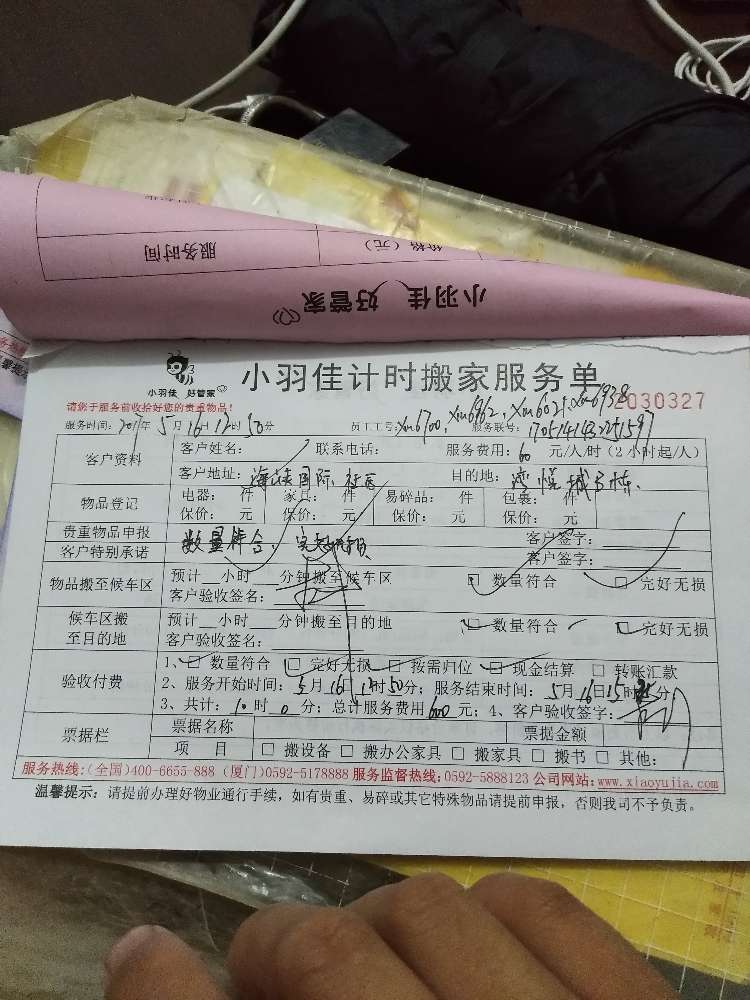 服务时间 价格(元)
小羽佳 好管家
小羽佳 好管家
小羽佳计时搬家服务单
请您于服务前收拾好您的贵重物品!
2030327
服务时间: 2017年5月16日12时50分 员工工号: xm6700, xm6962, xm6021, xm6938 服务联号:
客户资料 客户姓名: 联系电话: 服务费用: 60 元/人/时(2小时起/人)
客户地址: 海峡国际社区 目的地: 湾悦城5栋
物品登记 电器: 件 家具: 件 易碎品: 件 包裹: 件
保价: 元 保价: 元 保价: 元 保价: 元
贵重物品申报 数量符合, 完好无损 客户签字:
客户特别承诺 客户签字:
物品搬至候车区 预计 小时 分钟搬至候车区 数量符合 完好无损
客户验收签名:
候车区搬至目的地 预计 小时 分钟搬至目的地 数量符合 完好无损
客户验收签名:
验收付费 1、 数量符合 完好无损 按需归位 现金结算 转账汇款
2、服务开始时间: 5月16日12时50分; 服务结束时间: 5月16日15时 分;
3、共计: 10时0分; 总计服务费用600元; 4、客户验收签字:
票据栏 票据名称 票据金额
项 目 搬设备 搬办公家具 搬家具 搬书 其他:
服务热线:(全国)400-6655-888 (厦门)0592-5178888 服务监督热线:0592-5888123 公司网站:www.xiaoyujia.com
温馨提示: 请提前办理好物业通行手续,如有贵重、易碎或其它特殊物品请提前申报,否则我司不予负责。